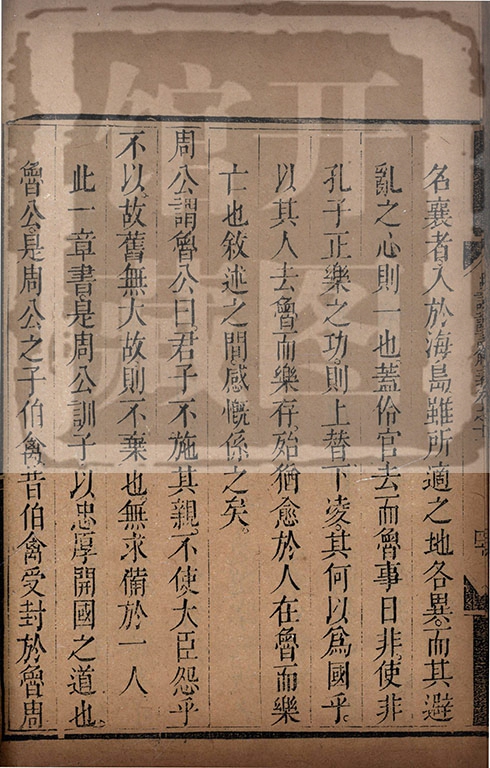 名襄者入於海島雖所適之地各異而其避
亂之心則一也蓋伶官去而魯事日非使非
孔子正樂之功則上替下凌其何以爲國乎。
以其人去魯而樂存殆猶愈於人在魯而樂
亡也敘述之間感慨係之矣。
周公謂魯公曰。君子不施其親。不使大臣怨乎
不以。故舊無大故則不棄也。無求備於一人
此一章書是周公訓子以忠厚開國之道也。
魯公是周公之子伯禽昔伯禽受封於魯周
开图
馆藏